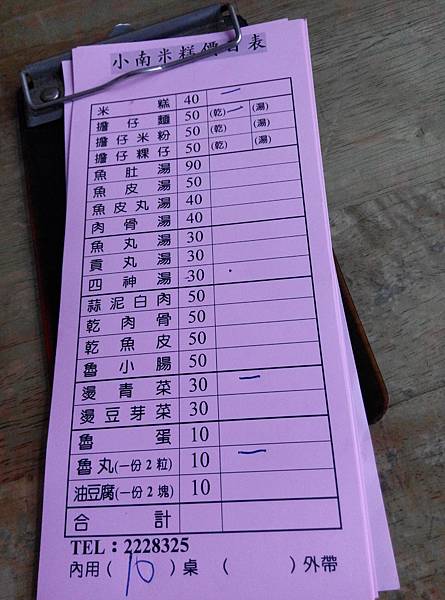 小南米糕價目表
米糕 40 二
擔仔麵 50 (乾) 一 (湯)
擔仔米粉 50 (乾) (湯)
擔仔粿仔 50 (乾) (湯)
魚肚湯 90
魚皮湯 50
魚皮丸湯 40
肉骨湯 40
魚丸湯 30
貢丸湯 30
四神湯 30
蒜泥白肉 50
乾肉骨 50
乾魚皮 50
魯小腸 50
燙青菜 30 一
燙豆芽菜 30
魯蛋 10
魯丸(一份2粒) 10 一
油豆腐(一份2塊) 10
合計
TEL：2228325
內用( 10 )桌 ( )外帶